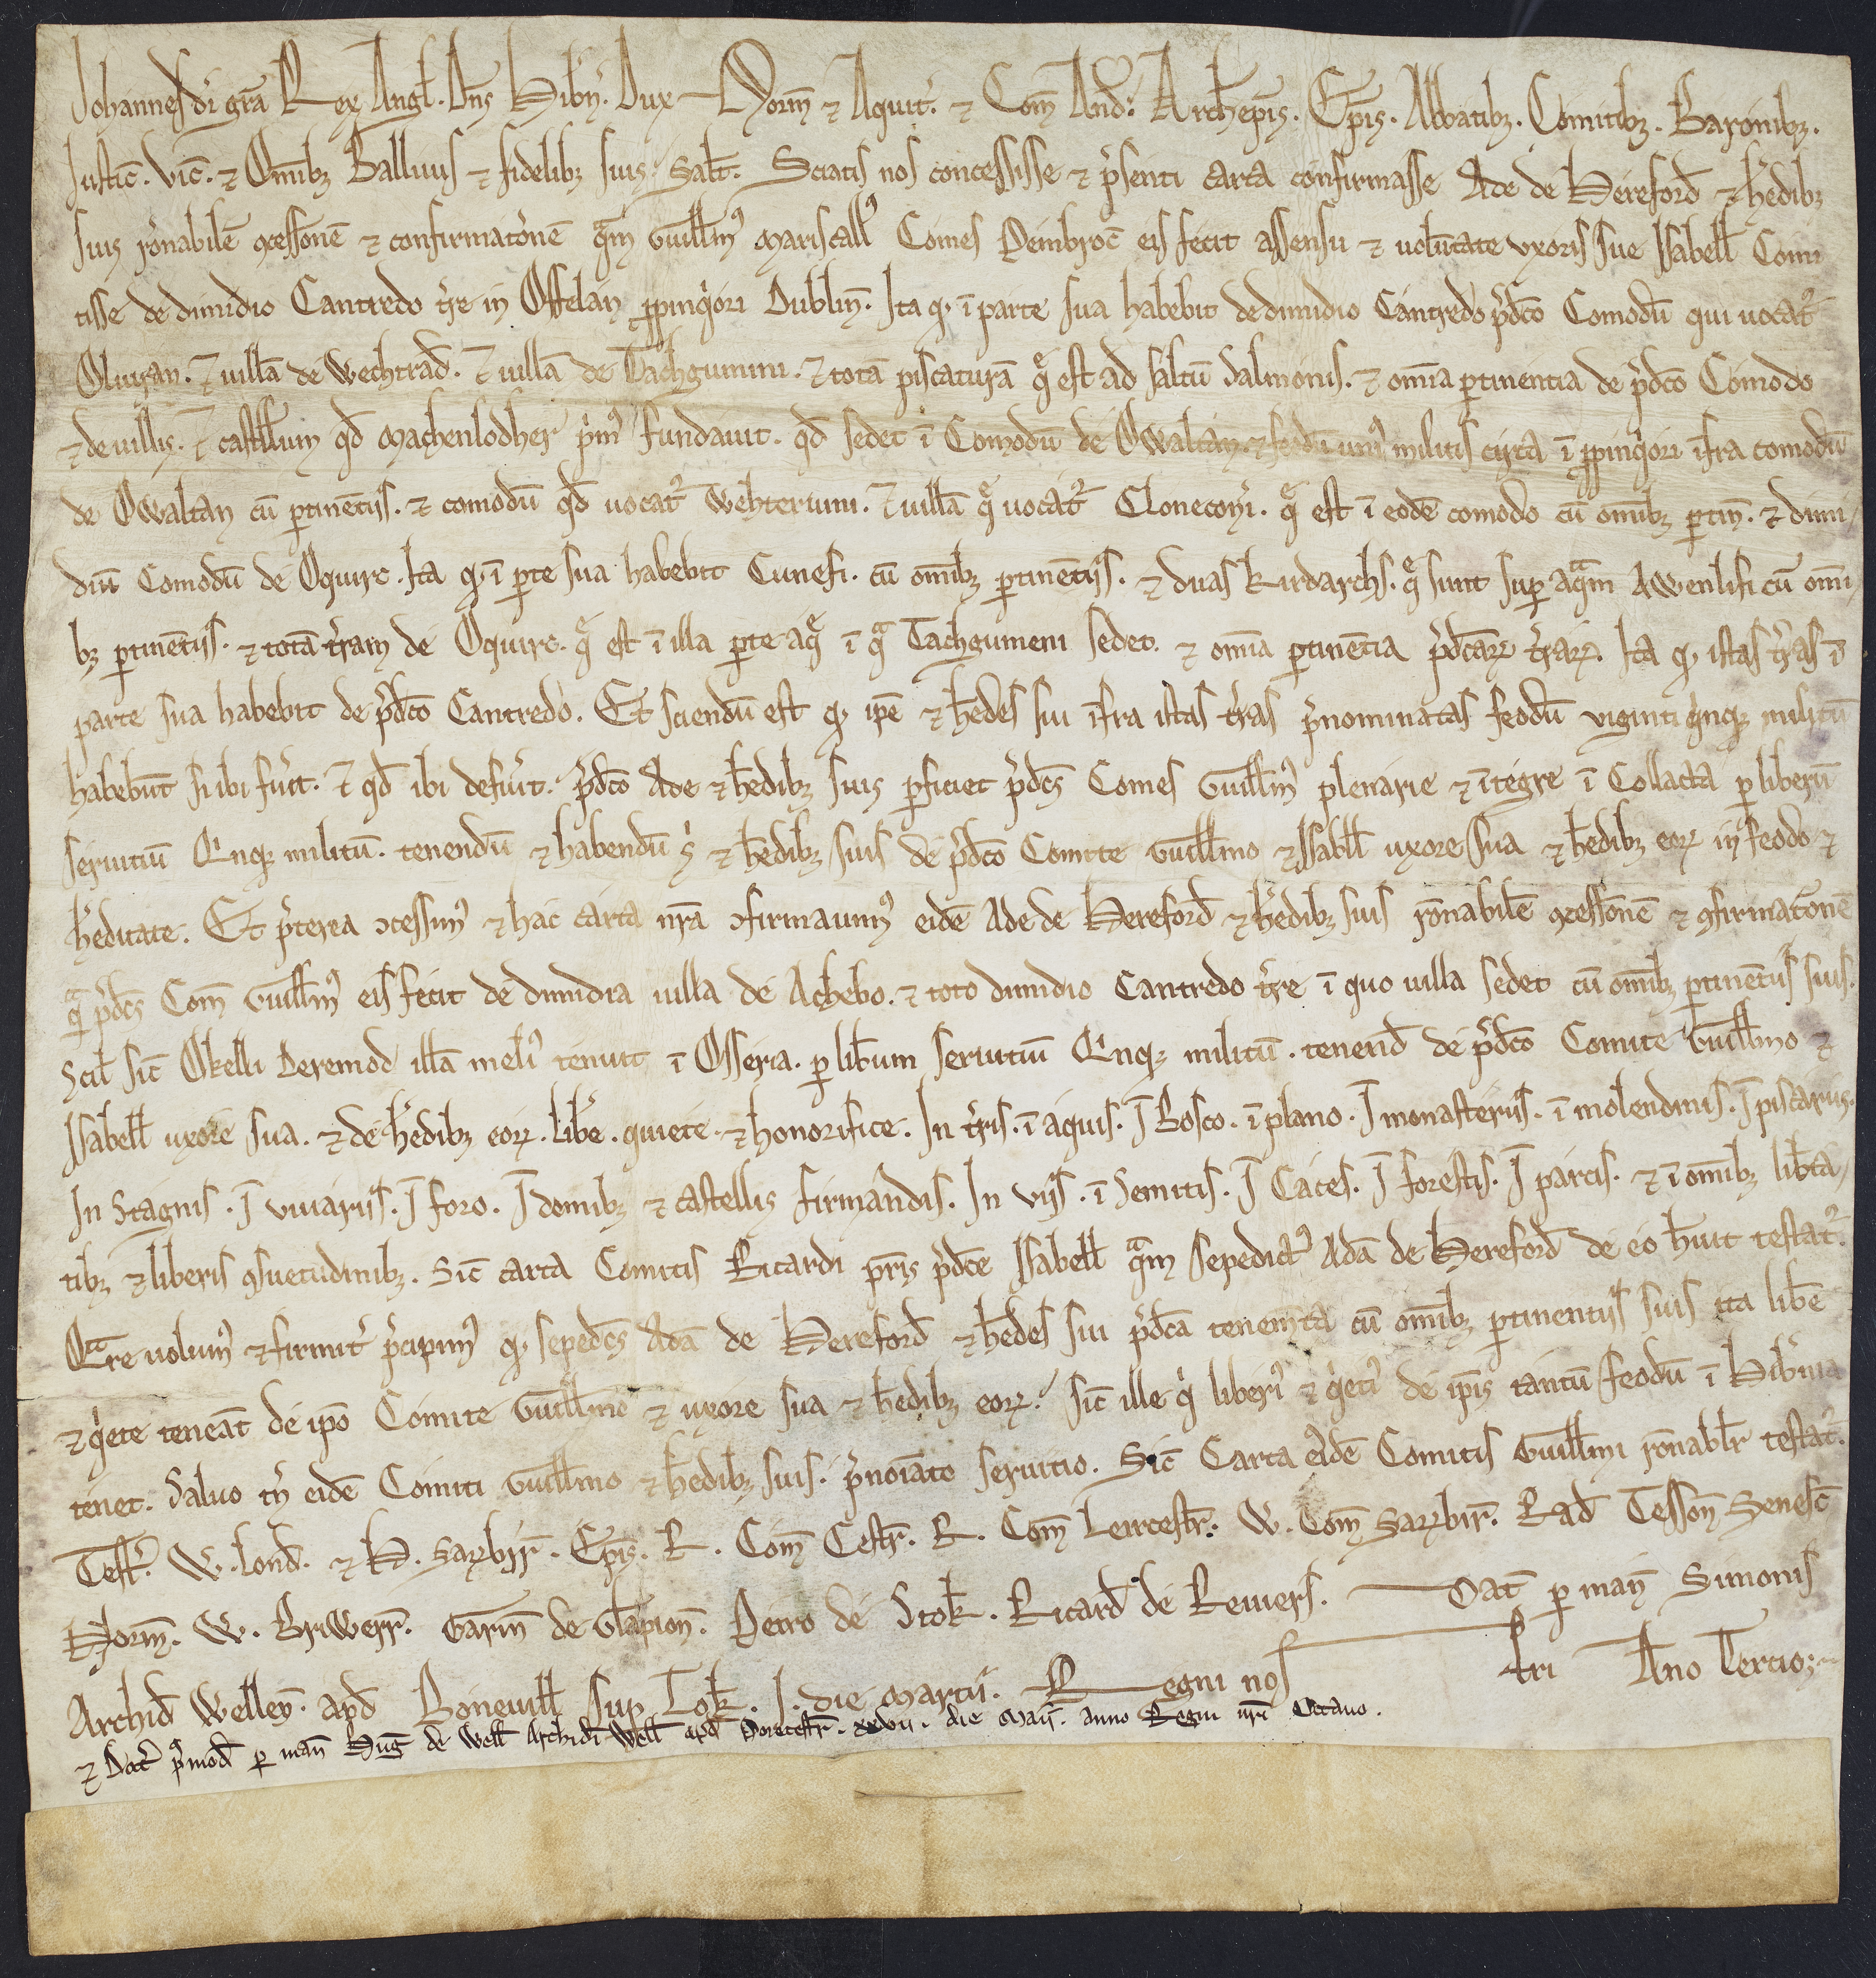 Johannes di gra Rex Angl. Dns Hibn. Dux Norm & Aquit. & Com And. Archiepis. Epis. Abbatibz. Comitibz. Baronibz.
Justic. Vic. & Omibz Ballivis & fidelibz suis salt. Sciatis nos concessisse & psenti carta confirmasse Ade de Hereford & hedibz
suis ronabile ↄcessione & confirmatione qam Guillmus Mariscallus Comes Penbroc eis fecit assensu & voluntate uxoris sue Isabell Comi
tisse de dimidio Cantredo tre in Offelan ppinqiori Dublin. Ita q. i parte sua habebit de dimidio Cantredo pdco Comodu qui vocatr
Oluiran. & villa de Wechtrad. & villa de Tachgumini. & tota piscatura q est ad saltu salmonis. & omia ptinentia de pdco Comodo
& de villis. & castellum qd Machenlodher pmus fundavit. qd sedet i Comodu de Owaltan. & feodu unius militis circa i ppinqiori ifra comodu
de Owaltan cu ptinetiis. & comodu qd vocatr Wehterum. & villa q vocatr Cloneconi. q est i eode comodo cu omibz ptin. & dimi
diu Comodu de Oquirc. Ita q. i pte sua habebit Cunefi. cu omibz ptinetiis. & duas kirdarchs. q sunt sup aqam Awenlifi cu omi
bz ptinetiis. & tota tram de Oquirc. q est i illa pte aq i qa Tachgumeni sedet. & omia ptinetia pdcarꝝ trarꝝ. Ita q. istas tras i
parte sua habebit de pdco Cantredo. Et sciendu est q. ipe & hedes sui ifra istas tras pnominatas feodu viginti qinqz militu
habebut si ibi fuit. & qd ibi defuit. pdco Ade & hedibz suis pficiet pdcs Comes Guillmus plenarie & itegre i Collacta p liberu
servitiu Qinqz militu. tenendu & habendu si & hedibz suis de pdco Comite Guillmo & Isabll uxore sua & hedibz eorꝝ in feodo &
heditate. Et pterea ↄcessimus & hac carta nra ↄfirmavimus eide Ade de Hereford & hedibz suis ronabile ↄcessione & ↄfirmatione
qa pdcs Com Guillmus eis fecit de dimidia villa de Achebo. & toto dimidio Cantredo tre i quo villa sedet cu omibz ptinetiis suis.
Scil sic Okelli Deremod illa melius tenuit i Osseria. p libum servitiu Qinqz militu. tenend de pdco Comite Guillmo &
Isabell uxore sua. & de hedibz eorꝝ. libe. quiete. & honorifice. In tris. i aquis. I Bosco. i plano. I monasteriis. i molendinis. I piscariis.
In Stagnis. I vivariis. I foro. I domibz & castellis firmandis. In viis. i Semitis. I Caces. I forestis. I parcis. & i omibz liberta
tibz & liberis ↄsuetudinibz. Sic carta Comitis Ricardi pris pdce Isabell qam sepedictus Ada de Hereford de eo huit testatr.
Qare volumus & firmit pcipimus q. sepedcs Ada de Hereford & hedes sui pdca tenemta cu omibz ptinentiis suis ita libe
& qiete teneat de ipo Comite Guillmo & uxore sua & hedibz eorꝝ. sic ille qi liberius & qietius de ipis tantu feodu i Hibnia
tenet. Salvo tn eide Comiti Guillmo & hedibz suis. pnoiato servitio. Sic Carta eide Comitis Guillmi ronablr testatr.
Test. W. Lond. & H. Sarꝝbir. Epis. R. Com Cestr. R. Com Leircestr. W. Com Sarꝝbir. Rad Tesson Senesc
Norm. W. Briwerr. Garin de Glapion. Petro de Stok. Ricard de Reviers. Dat p man Simonis
Archid Wellen. apd Bonevill sup Tok. I. die Martii. Regni nostri Ano Tercio;
& Dat pmod p man Hug de Well Archid Well apd Porecestr. xxvii. die Maii. anno Regni nri Octavo.